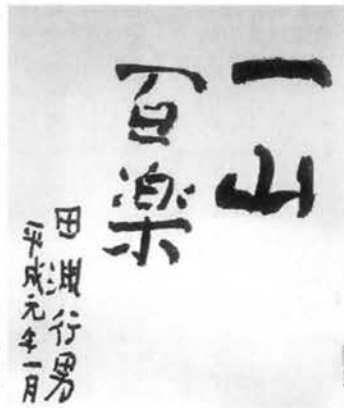 一山
百楽
田淵行男
平成元年一月